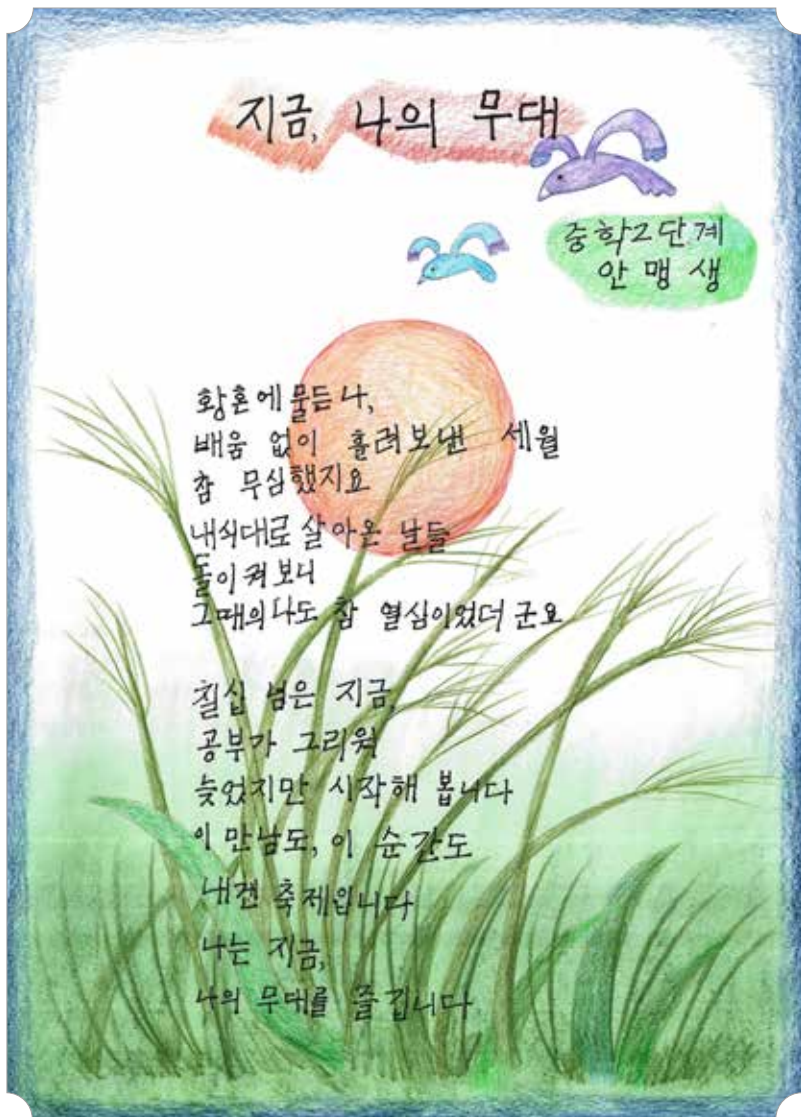 지금, 나의 무대
중학2단계
안맹생
황혼에 물든 나,
배움 없이 흘려보낸 세월
참 무심했지요
내식대로 살아온 날들
돌이켜보니
그때의 나도 참 열심이었더군요
칠십 넘은 지금,
공부가 그리워
늦었지만 시작해 봅니다
이 만남도, 이 순간도
내겐 축제입니다
나는 지금,
나의 무대를 즐깁니다